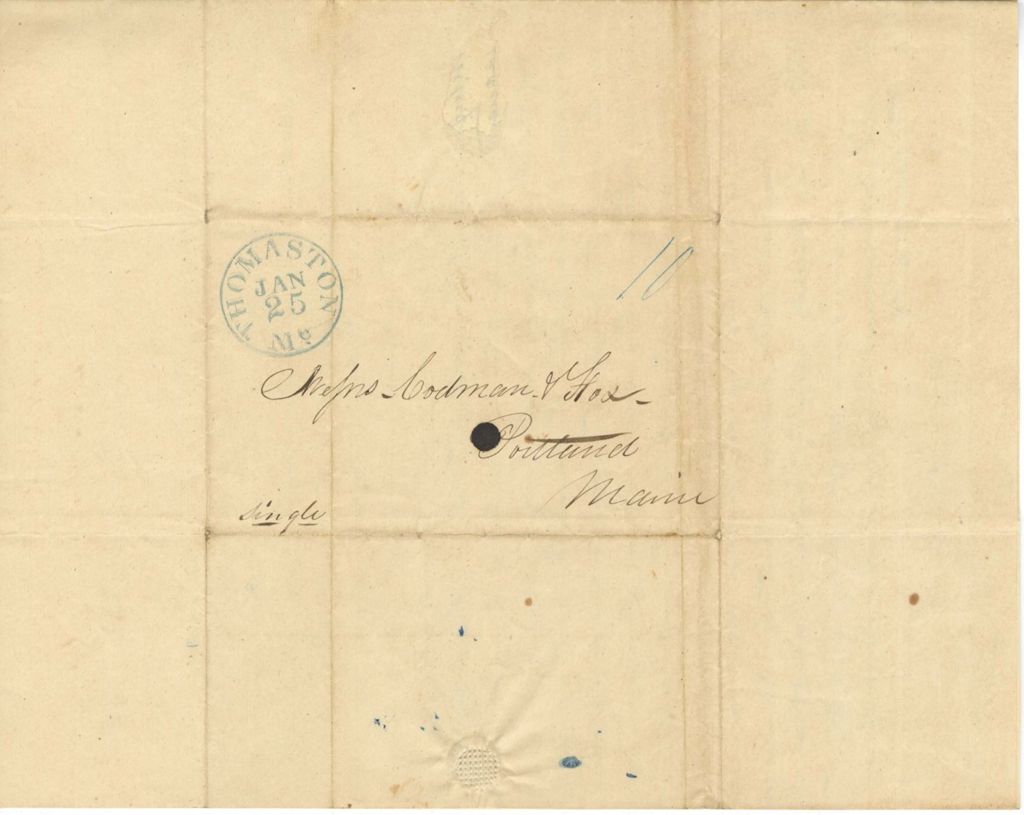 THOMASTON Me
JAN
25
10
Messrs Codman & Fox
Portland
Maine
single